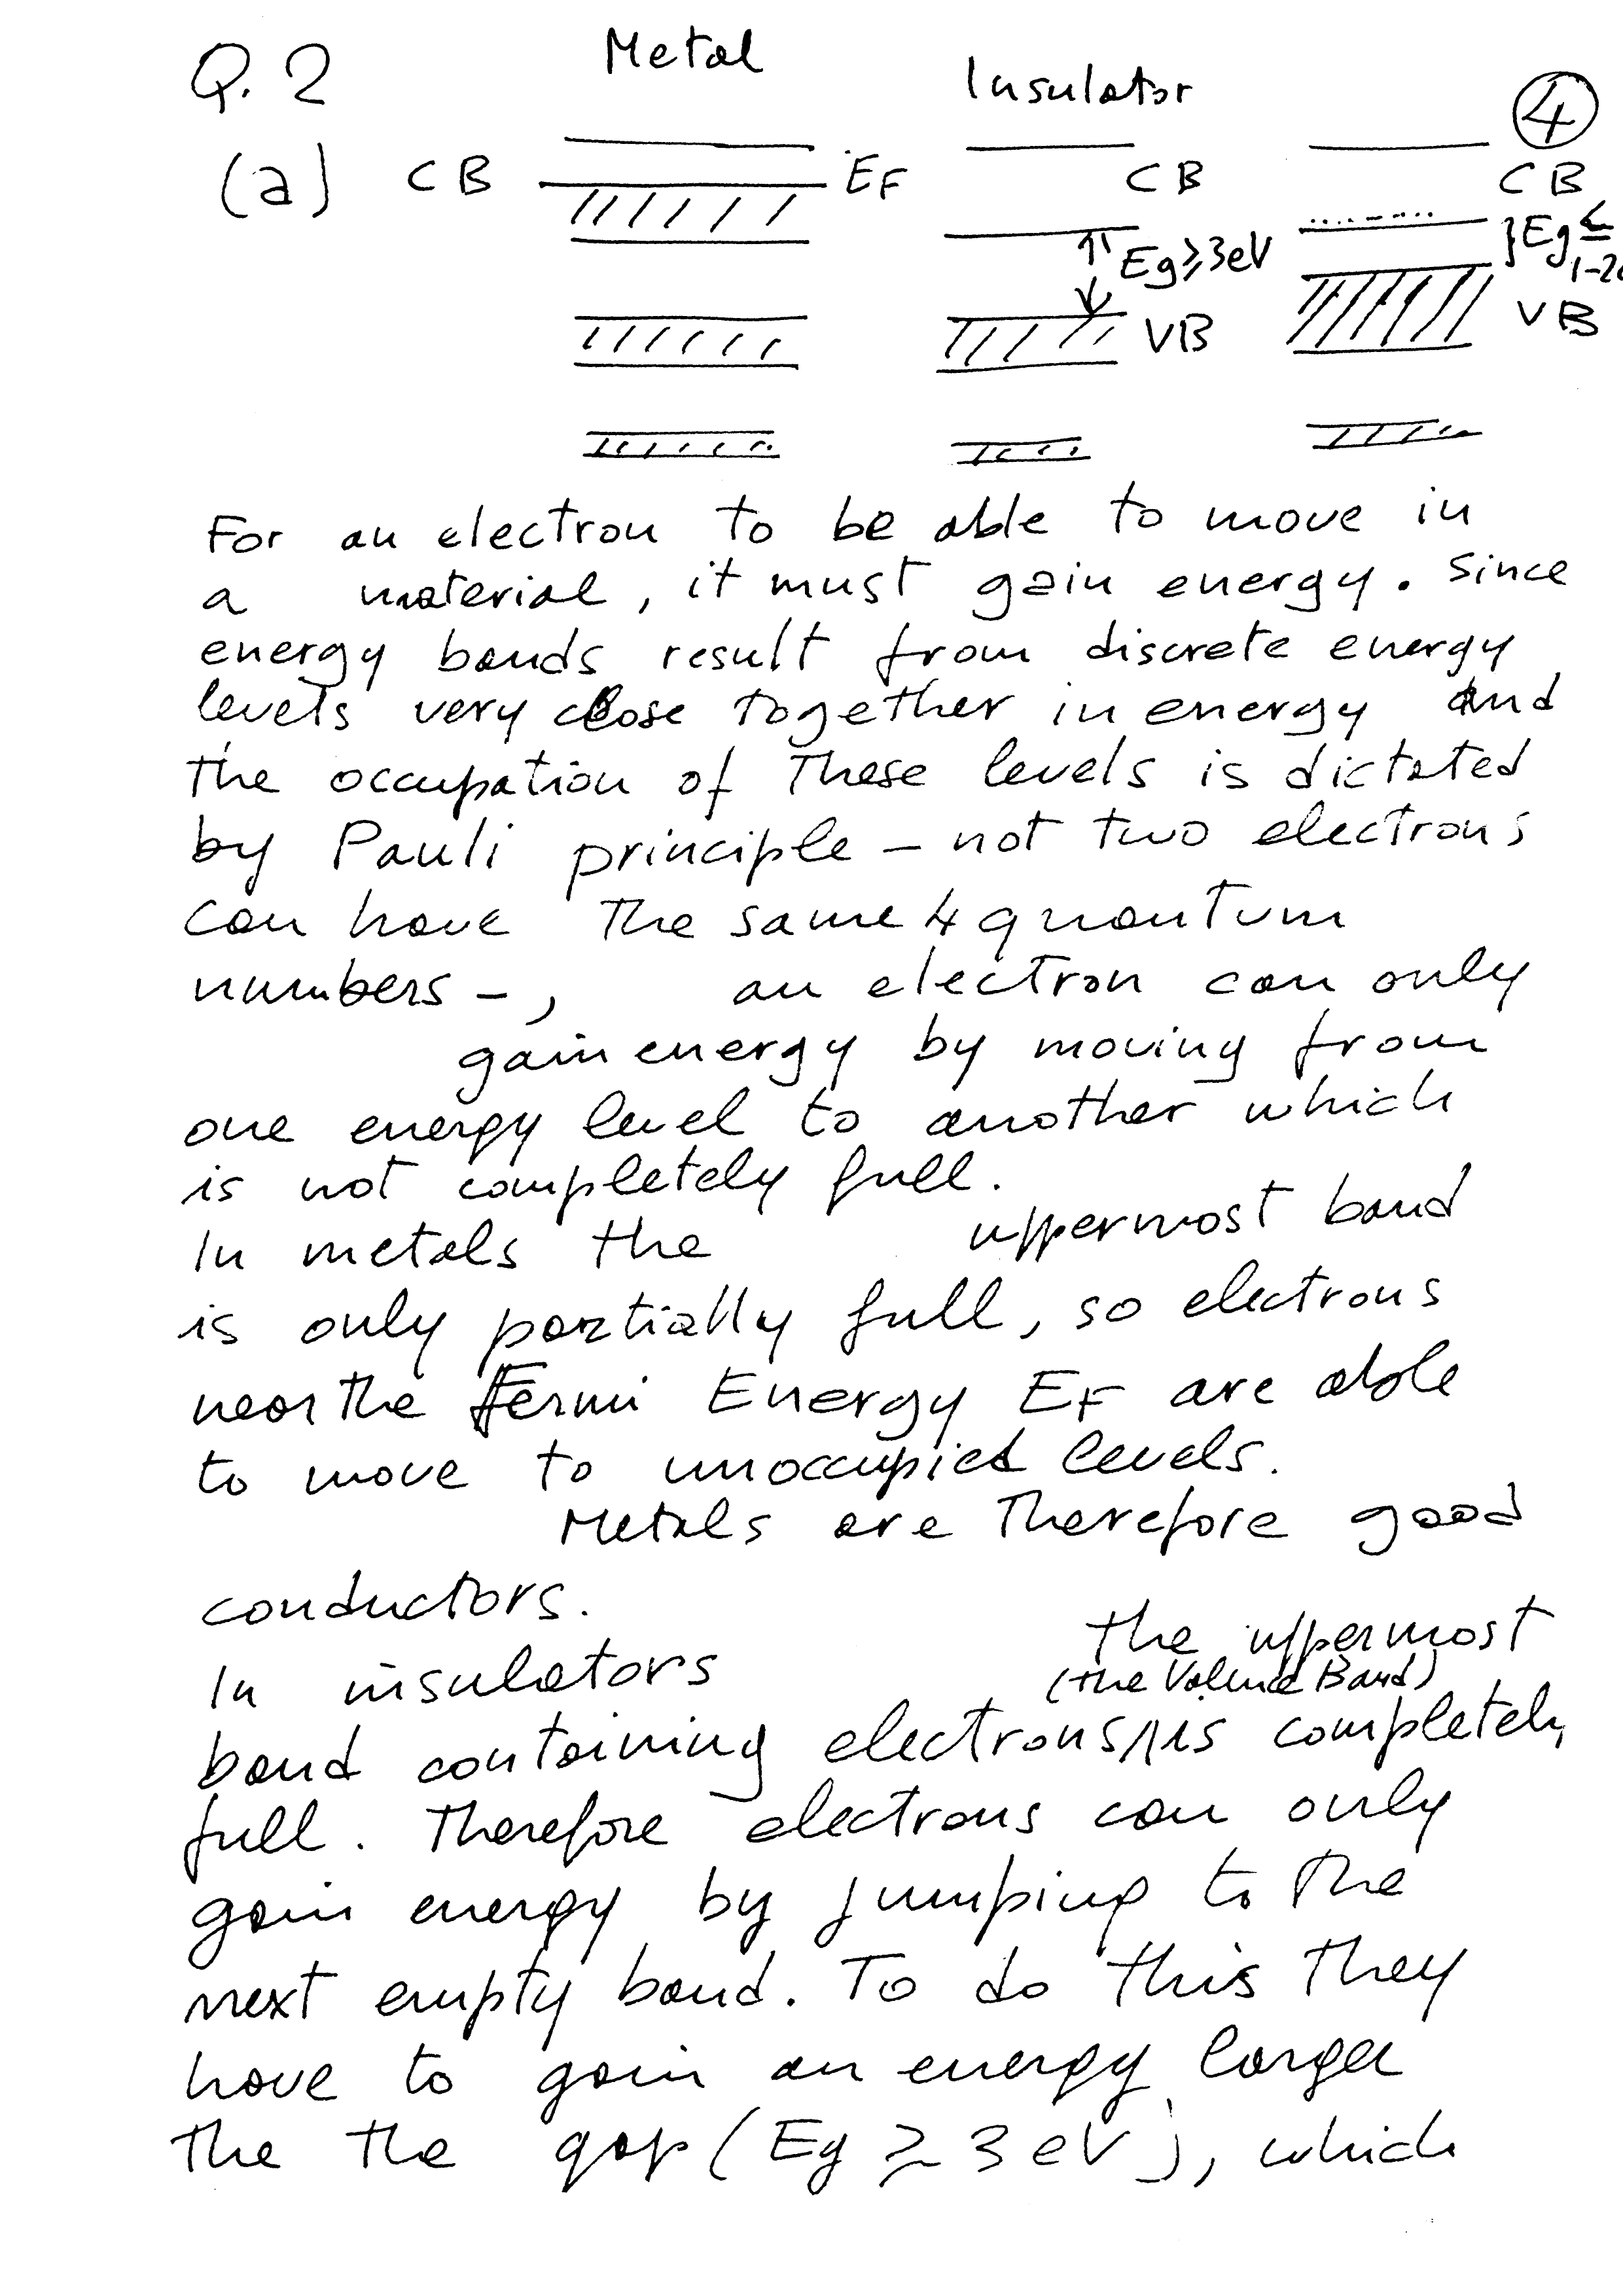 Q. 2
Metal
Insulator
4
(a)
CB
EF
CB
CB
Eg ≥ 3eV
} Eg ≤
1-2
VB
VB
For an electron to be able to move in
a material, it must gain energy. Since
energy bands result from discrete energy
levels very close together in energy and
the occupation of these levels is dictated
by Pauli principle - not two electrons
can have the same 4 quantum
numbers -, an electron can only
gain energy by moving from
one energy level to another which
is not completely full.
In metals the uppermost band
is only partially full, so electrons
near the Fermi Energy EF are able
to move to unoccupied levels.
Metals are therefore good
conductors.
In insulators the uppermost
(the Valence Band)
band containing electrons is completely
full. Therefore electrons can only
gain energy by jumping to the
next empty band. To do this they
have to gain an energy larger
the the gap (Eg ≳ 3 eV), which